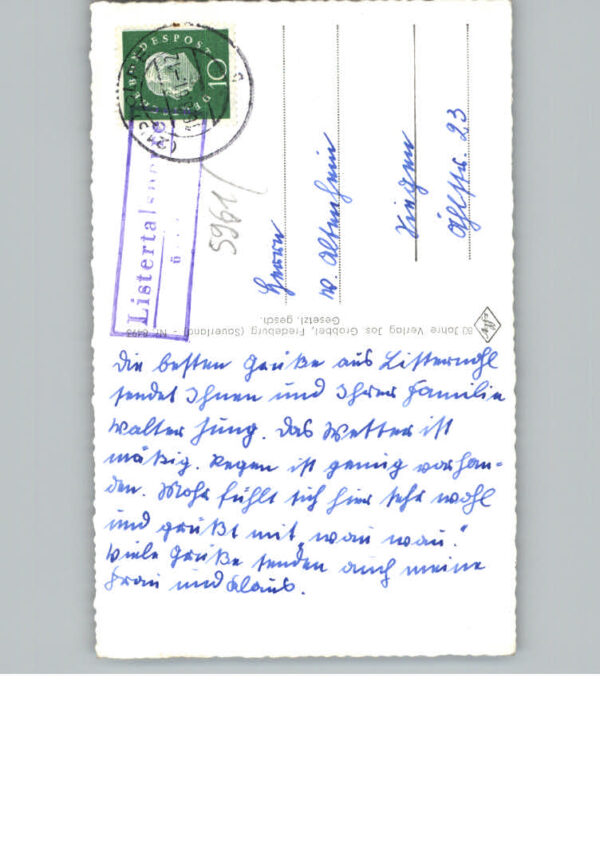 Die besten Grüße aus Listernohl
sendet Ihnen und Ihrer Familie
Walter Jung. Das Wetter ist
mäßig. Regen ist genug vorhan-
den. Mohr fühlt sich hier sehr wohl
und grüßt mit „wau wau".
Viele Grüße senden auch meine
Frau und Klaus.
Herrn
W. Altenhein
Siegen
Ahlstr. 23
83 Jahre Verlag Jos Grobbel, Fredeburg (Sauerland) - Nr.
Gesetzl. gesch.
DEUTSCHE BUNDESPOST
10
Listertalsperre
5961